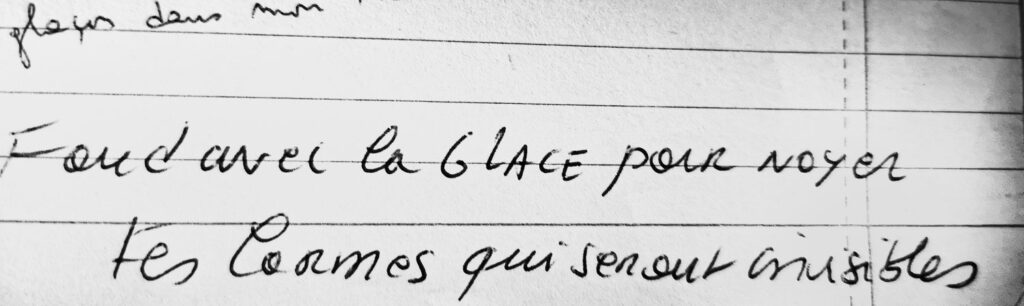 glaçes dans mon
Fond avec la GLACE pour NOYER
tes larmes qui seront invisibles